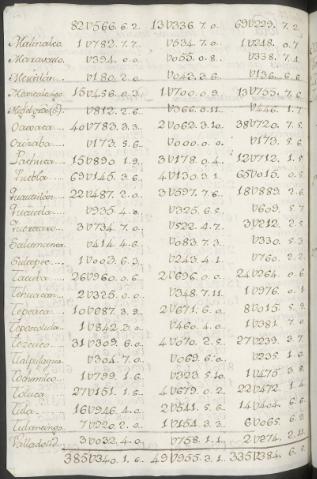 82V566. 6. 2. 13V336. 7. 0. 69V229. 7. 2.
Malinalco. 1V782. 7. 7. V534. 7. 0. 1V248. 0. 7
Maravatio. V394. 0. 0 V055. 0. 8. V338. 7. 4
V180. 2. 0 V043. 3. 6. V136. 6. 6
15V456. 0. 3 1V700. 0. 9. 13V755. 7. 6
V812. 2. 6 V366. 0. 11 V446. 1. 7
Oaxaca 40V783. 3. 3. 2V062. 3. 10. 38V720. 7. 5.
Orizaba V173. 5. 6. V000. 0. 0. V173. 5. 6
Pachuca 15V890. 1. 9. 3V178. 0. 4. 12V712. 1. 5
Puebla 69V145. 3. 6. 4V130. 3. 1. 65V015. 0. 5
Quautitlan 22V487. 2. 0. 3V597. 7. 6. 18V889. 2. 6
V935. 4. 0. V325. 6. 5. V609. 5. 7
Queretaro 3V734. 7. 0. V522. 4. 7. 3V212. 2. 5
Salamanca V414. 4. 6. V083. 7. 3. V330. 5. 3
Sultepec 1V003. 6. 3. V243. 4. 1. V760. 2. 2
Tacuba 26V960. 0. 6. 2V696. 0. 0. 24V264. 0. 6
Tehuacan 2V325. 0. 0. V348. 7. 11. 1V976. 0. 1
Tepeaca 10V687. 3. 9. 2V671. 6. 0. 8V015. 5. 9
1V842. 3. 0. V460. 4. 0. 1V381. 7. 0
Texcoco 31V309. 6. 0. 4V070. 2. 5. 27V239. 3. 7
Tlalpujagua V304. 7. 0. V069. 6. 0. V235. 1. 0
Xochimilco 1V799. 1. 6. V323. 5. 10. 1V475. 3. 8
Toluca 27V151. 1. 5. 4V679. 0. 2. 22V472. 1. 4
Tula 16V946. 4. 0. 2V541. 5. 6. 14V404. 6. 6
Tulancingo 7V220. 2. 0. 1V154. 3. 3. 6V065. 6. 2
Valladolid 3V032. 4. 0. V758. 1. 1. 2V274. 2. 11
385V340. 1. 6. 49V955. 3. 1. 335V384. 6. 5.